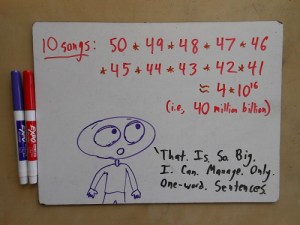 10 songs: 50 * 49 * 48 * 47 * 46
* 45 * 44 * 43 * 42 * 41
≈ 4 * 10¹⁶
(i.e., 40 million billion)
That. Is. So. Big.
I. Can. Manage. Only.
One-word. Sentences.
EXPO
EXPO